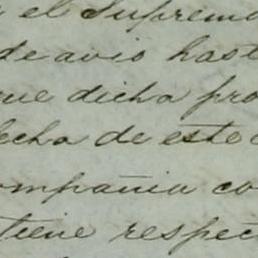 el Supremo
de avio hast
que dicha pro
fecha de este
ompañia co
tiene respec